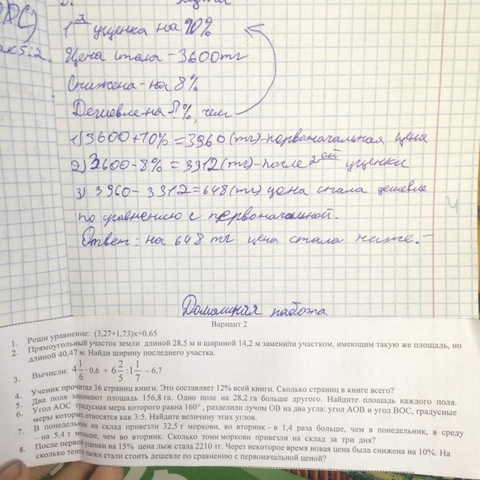 1я уценка на 10%
Цена стала – 3600тг
Снижена – на 8%
Дешевле на ?%, чем
1) 3600+10% = 3960 (тг) – первоначальная цена
2) 3600–8% = 3312 (тг) – после 2ой уценки
3) 3960–3312 = 648 (тг) цена стала дешевле
по сравнению с первоначальной.
Ответ: на 648 тг цена стала ниже.
Домашняя работа
Вариант 2
1. Реши уравнение: (3,27+1,73)х=0,65
2. Прямоугольный участок земли длиной 28,5 м и шириной 14,2 м заменили участком, имеющим такую же площадь, но
длиной 40,47 м. Найди ширину последнего участка.
3. Вычисли: 4 1/6 · 0,6 + 6 2/5 : 1 1/7 – 6,7
4. Ученик прочитал 36 страниц книги. Это составляет 12% всей книги. Сколько страниц в книге всего?
5. Два поля занимают площадь 156,8 га. Одно поле на 28,2 га больше другого. Найдите площадь каждого поля.
6. Угол АОС градусная мера которого равна 160°, разделили лучом ОВ на два угла: угол АОВ и угол ВОС, градусные
меры которых относятся как 3:5. Найдите величину этих углов.
7. В понедельник на склад привезли 32,5 т моркови, во вторник - в 1,4 раза больше, чем в понедельник, в среду
– на 5,4 т меньше, чем во вторник. Сколько тонн моркови привезли на склад за три дня?
8. После первой уценки на 15% цена лыж стала 2210 тг. Через некоторое время новая цена была снижена на 10%. На
сколько тенге лыжи стали стоить дешевле по сравнению с первоначальной ценой?